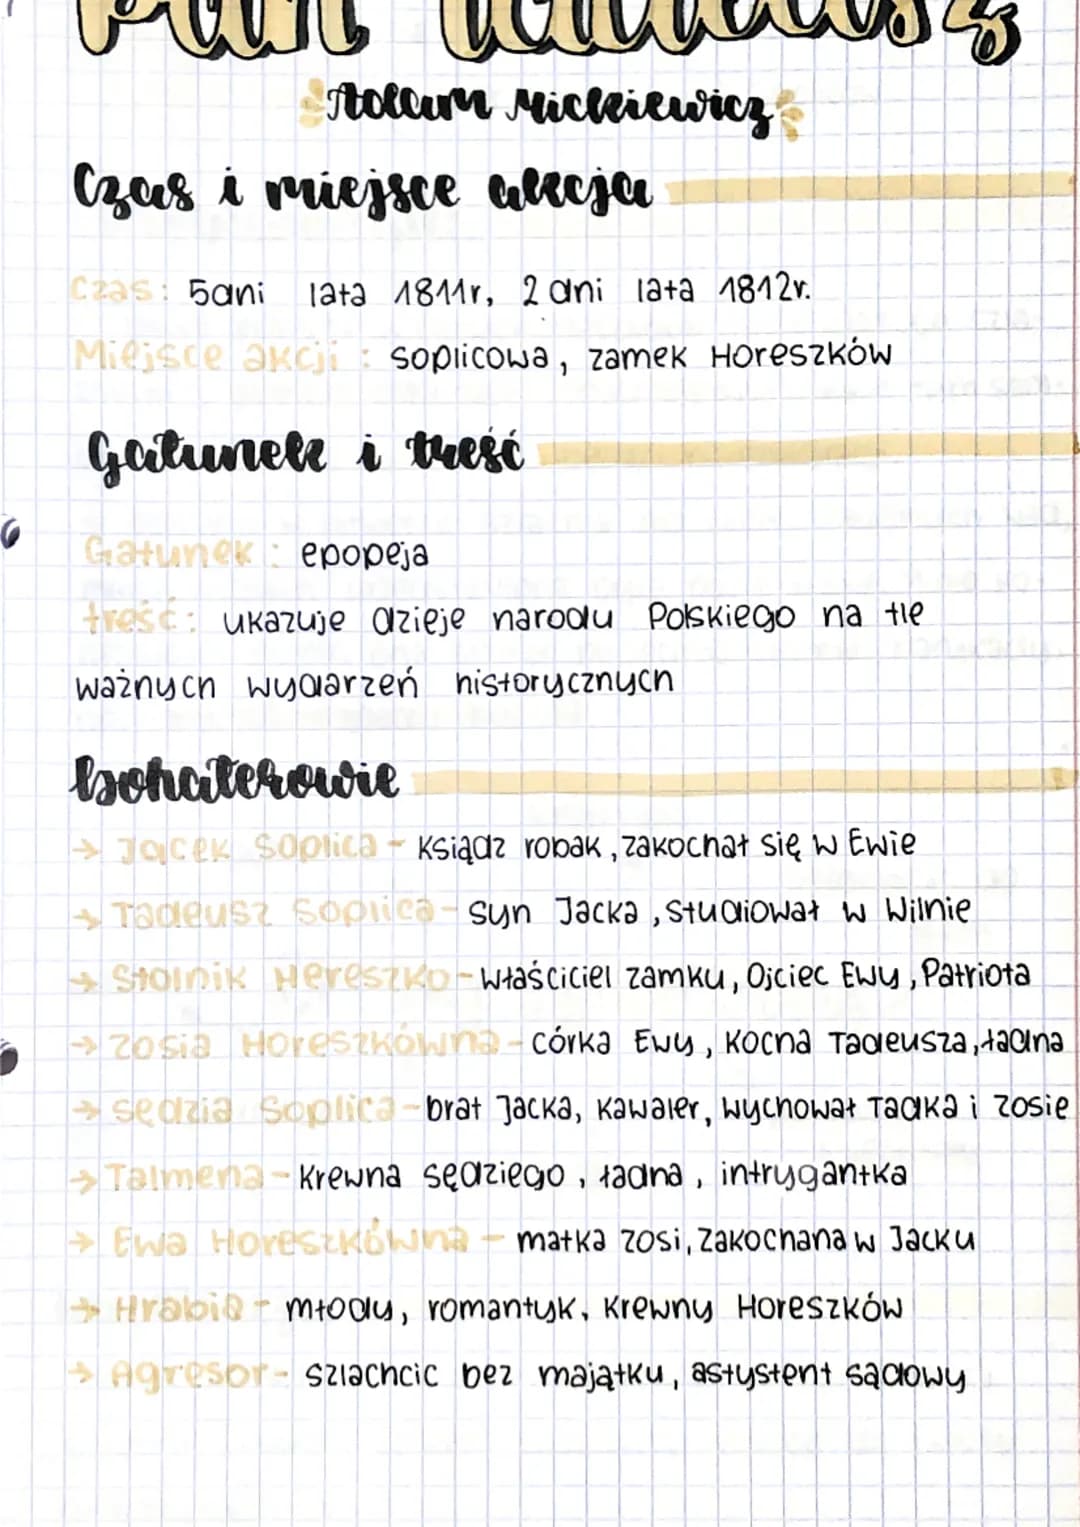 Pan Tadeusz
Adam Mickiewicz
Czas i miejsce akcja
Czas: 5dni lata 1811r, 2 dni lata 1812r.
Miejsce akcji : soplicowa, zamek Horeszków
Gatunek i treść
Gatunek : epopeja
treść: ukazuje dzieje narodu Polskiego na tle
ważnych wydarzeń historycznych
bohaterowie
→ Jacek Soplica - Ksiądz robak, zakochał się w Ewie
→ Tadeusz Soplica - syn Jacka, studiował w Wilnie
→ Stolnik Hereszko - właściciel zamku, Ojciec Ewy, Patriota
→ Zosia Horeszkówna - córka Ewy, kocha Tadeusza, ładna
→ sędzia Soplica - brat Jacka, kawaler, wychował Tadka i Zosie
→ Talmena - krewna sędziego, ładna, intrygantka
→ Ewa Horeszkówna - matka zosi, zakochana w Jacku
→ Hrabia - młody, romantyk, krewny Horeszków
→ Agresor - szlachcic bez majątku, astystent sądowy